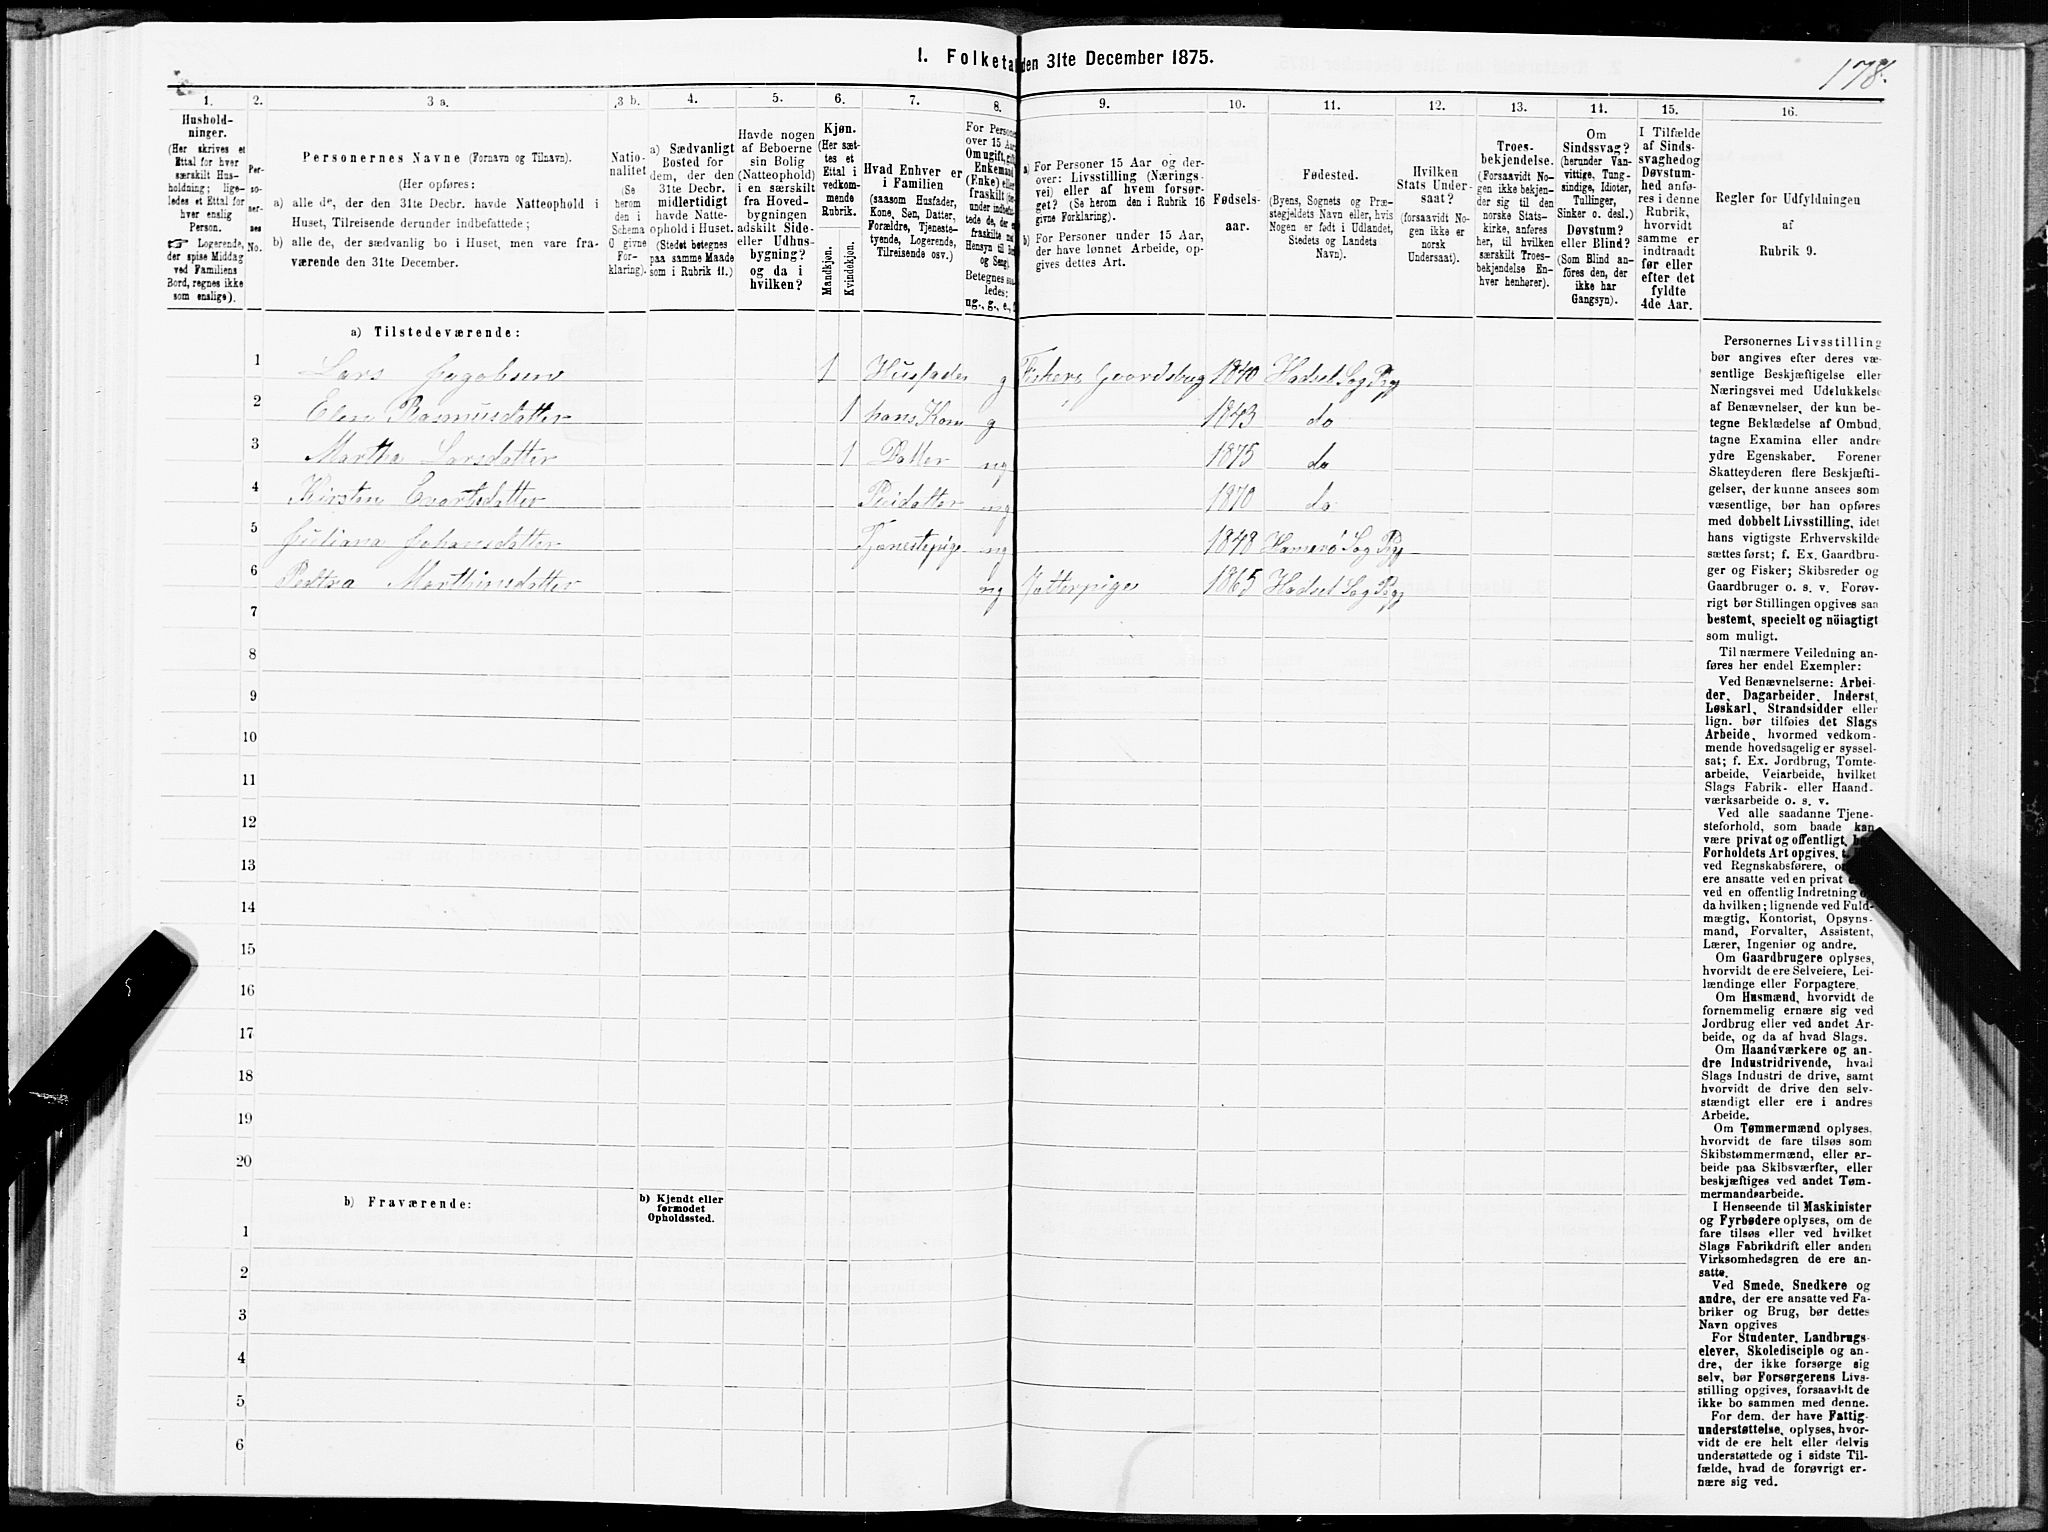 I. Folketal den 31te December 1875.
178.
1. 2. 3 a. 3 b. 4. 5. 6. 7. 8. 9. 10. 11. 12. 13. 14. 15. 16.
Hushold-
ninger.
(Her skrives et
Ettal for hver
særskilt Hus-
holdning; lige-
ledes et Ettal for
hver enslig
Person.
☞ Logerende,
der spise Middag
ved Familiens
Bord, regnes ikke
som enslige).
Per-
so-
ner-
nes
No.
Personernes Navne (Fornavn og Tilnavn).
(Her opføres:
a) alle de, der den 31te Decbr. havde Natteophold i
Huset, Tilreisende derunder indbefattede;
b) alle de, der sædvanlig bo i Huset, men vare fra-
værende den 31te December.
Natio-
nalitet
(Se
herom
den i
Schema
O givne
For-
klaring).
a) Sædvanligt
Bosted for
dem, der den
31te Decbr.
midlertidigt
havde Natte-
ophold i Huset.
(Stedet betegnes
paa samme Maade
som i Rubrik 11.)
Havde nogen
af Beboerne
sin Bolig
(Natteophold)
i en særskilt
fra Hoved-
bygningen
adskilt Side-
eller Udhus-
bygning?
og da i
hvilken?
Kjøn.
(Her sæt-
tes et
Ettal i
vedkom-
mende
Rubrik.
Mandkjøn.
Kvindekjøn.
Hvad Enhver er
i Familien
(saasom Husfader,
Kone, Søn, Datter,
Forældre, Tjeneste-
tyende, Logerende,
Tilreisende osv.)
For Persone
over 15 Aar
Om ugift, gift,
Enkemand
(Enke) eller
fraskilt
Betegnes saa-
ledes:
ug., g., e.,
a) For Personer 15 Aar og der-
over: Livsstilling (Nærings-
vei) eller af hvem forsør-
get? (Se herom den i Rubrik 16
givne Forklaring).
b) For Personer under 15 Aar,
der have lønnet Arbeide, op-
gives dettes Art.
Fødsels-
aar.
Fødested.
(Byens, Sognets og Præ-
stegjeldets Navn eller, hvis
Nogen er født i Udlandet,
Stedets og Landets
Navn).
Hvilken
Stats Under-
saat?
(forsaavidt No-
gen ikke er
norsk
Undersaat).
Troes-
bekjendelse.
(Forsaavidt No-
gen ikke bekjen-
der sig til den
norske Stats-
kirke, anføres
her, til hvilken
særskilt Troes-
bekjendelse En-
hver henhører).
Om
Sindssvag?
(herunder Van-
vittige, Tung-
sindige, Idioter,
Tullinger,
Sinker o. desl.)
Døvstum?
eller Blind?
(Som Blind an-
føres den, der
ikke har
Gangsyn).
I Tilfælde
af Sinds-
svaghed og
Døvstum-
hed anfø-
res i denne
Rubrik,
hvorvidt
samme er
indtraadt
før eller
efter det
fyldte
4de Aar.
Regler for Udfyldningen
af
Rubrik 9.
a) Tilstedeværende:
1 Lars Jagobsen 1 Husfader g Fisker Gaardsbrug 1840 Hadsel Sog Pgj
2 Elen Rasmusdatter 1 hans Kone g 1843 do
3 Martha Larsdatter 1 Datter ug 1875 do
4 Kirsten Evartsdatter Pleidatter ug 1870 do
5 Juliana Johansdatter Tjenestepige ug 1848 Hamerö Sog Pgj
6 Pedtra Marthinusdatter ug 1865 Hadsel Sog Pgj
7
8
9
10
11
12
13
14
15
16
17
18
19
20
b) Fraværende:
b) Kjendt eller
formodet
Opholdssted.
1
2
3
4
5
6
Personernes Livsstilling
bør angives efter deres væ-
sentlige Beskjæftigelse eller
Næringsvei med Udelukkelse
af Benævnelser, der kun be-
tegne Beklædelse af Ombud,
tagne Examina eller andre
ydre Egenskaber. Forener
Skatteyderen flere Beskjæfti-
gelser, der kunne ansees som
væsentlige, bør han opføres
med dobbelt Livsstilling, idet
hans vigtigste Erhvervskilde
sættes først; f. Ex. Gaardbru-
ger og Fisker; Skibsreder og
Gaardbruger o. s. v. Forøv-
rigt bør Stillingen opgives saa
bestemt, specielt og nöiagtigt
som muligt.
Til nærmere Veiledning an-
føres her endel Exempler:
Ved Benævnelserne: Arbei-
der, Dagarbeider, Inderst,
Løskarl, Strandsidder eller
lign. bør tilføies det Slags
Arbeide, hvormed vedkom-
mende hovedsagelig er syssel-
sat; f. Ex. Jordbrug, Tomte-
arbeide, Veiarbeide, hvilket
Slags Fabrik- eller Haand-
værksarbeide o. s. v.
Ved alle saadanne Tjene-
steforhold, som baade kan
være privat og offentligt, bør
Forholdets Art opgives,
ved Regnskabsførere,
ere ansatte ved en privat
ved en offentlig Indretning
da hvilken; lignende ved Fuld-
mægtig, Kontorist, Opsyns-
mand, Forvalter, Assistent,
Lærer, Ingeniør og andre.
Om Gaardbrugere oplyses,
hvorvidt de ere Selveiere, Lei-
lændinge eller Forpagtere.
Om Husmænd, hvorvidt de
fornemmelig ernære sig ved
Jordbrug eller ved andet Ar-
beide, og da af hvad Slags.
Om Haandværkere og an-
dre Industridrivende, hvad
Slags Industri de drive, samt
hvorvidt de drive den selv-
stændigt eller ere i andres
Arbeide.
Om Tømmermænd oplyses,
hvorvidt de fare tilsøs som
Skibstømmermænd, eller er-
beide paa Skibsværfter, eller
beskjæftiges ved andet Tøm-
mermandsarbeide.
I Henseende til Maskinister
og Fyrbødere oplyses, om de
fare tilsøs eller ved hvilket
Slags Fabrikdrift eller anden
Virksomhedsgren de ere an-
satte.
Ved Smede, Snedkere og
andre, der ere ansatte ved Fa-
briker og Brug, bør dettes
Navn opgives
For Studenter, Landbrugs-
elever, Skoledisciple og an-
dre, der ikke forsørge sig
selv, bør Forsørgerens Livs-
stilling opgives, forsaavidt de
ikke bo sammen med denne.
For dem, der have Fattig-
understøttelse, oplyses, hvor-
vidt de ere helt eller delvis
understøttede og i sidste Til-
fælde, hvad de forøvrigt er-
nære sig ved.